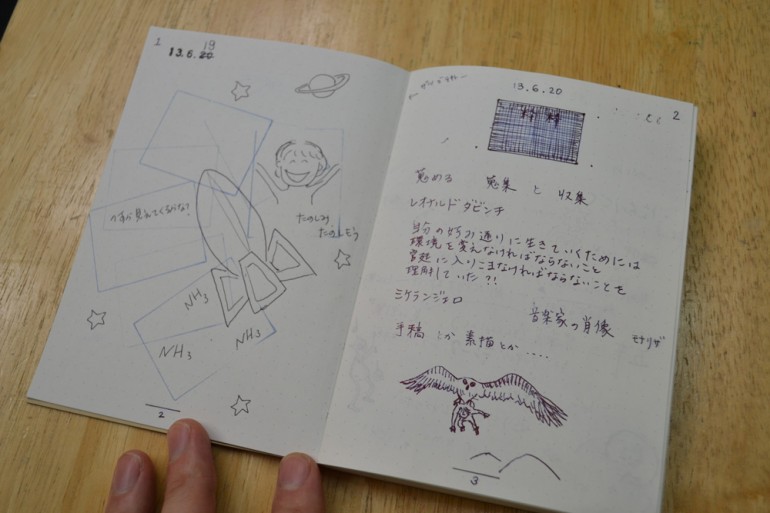 1
19
13.6.20
たのしみ
たのしそう
NH3
NH3
NH3
2
13.6.20
2
蒐める 蒐集 と 収集
レオナルド ダビンチ
自分の好み通りに生きていくためには
環境を変えなければならないこと
宮廷に入りこまなければならないことを
理解していた?!
ミケランジェロ
音楽家の肖像 モナリザ
手稿 とか 素描とか ....
3